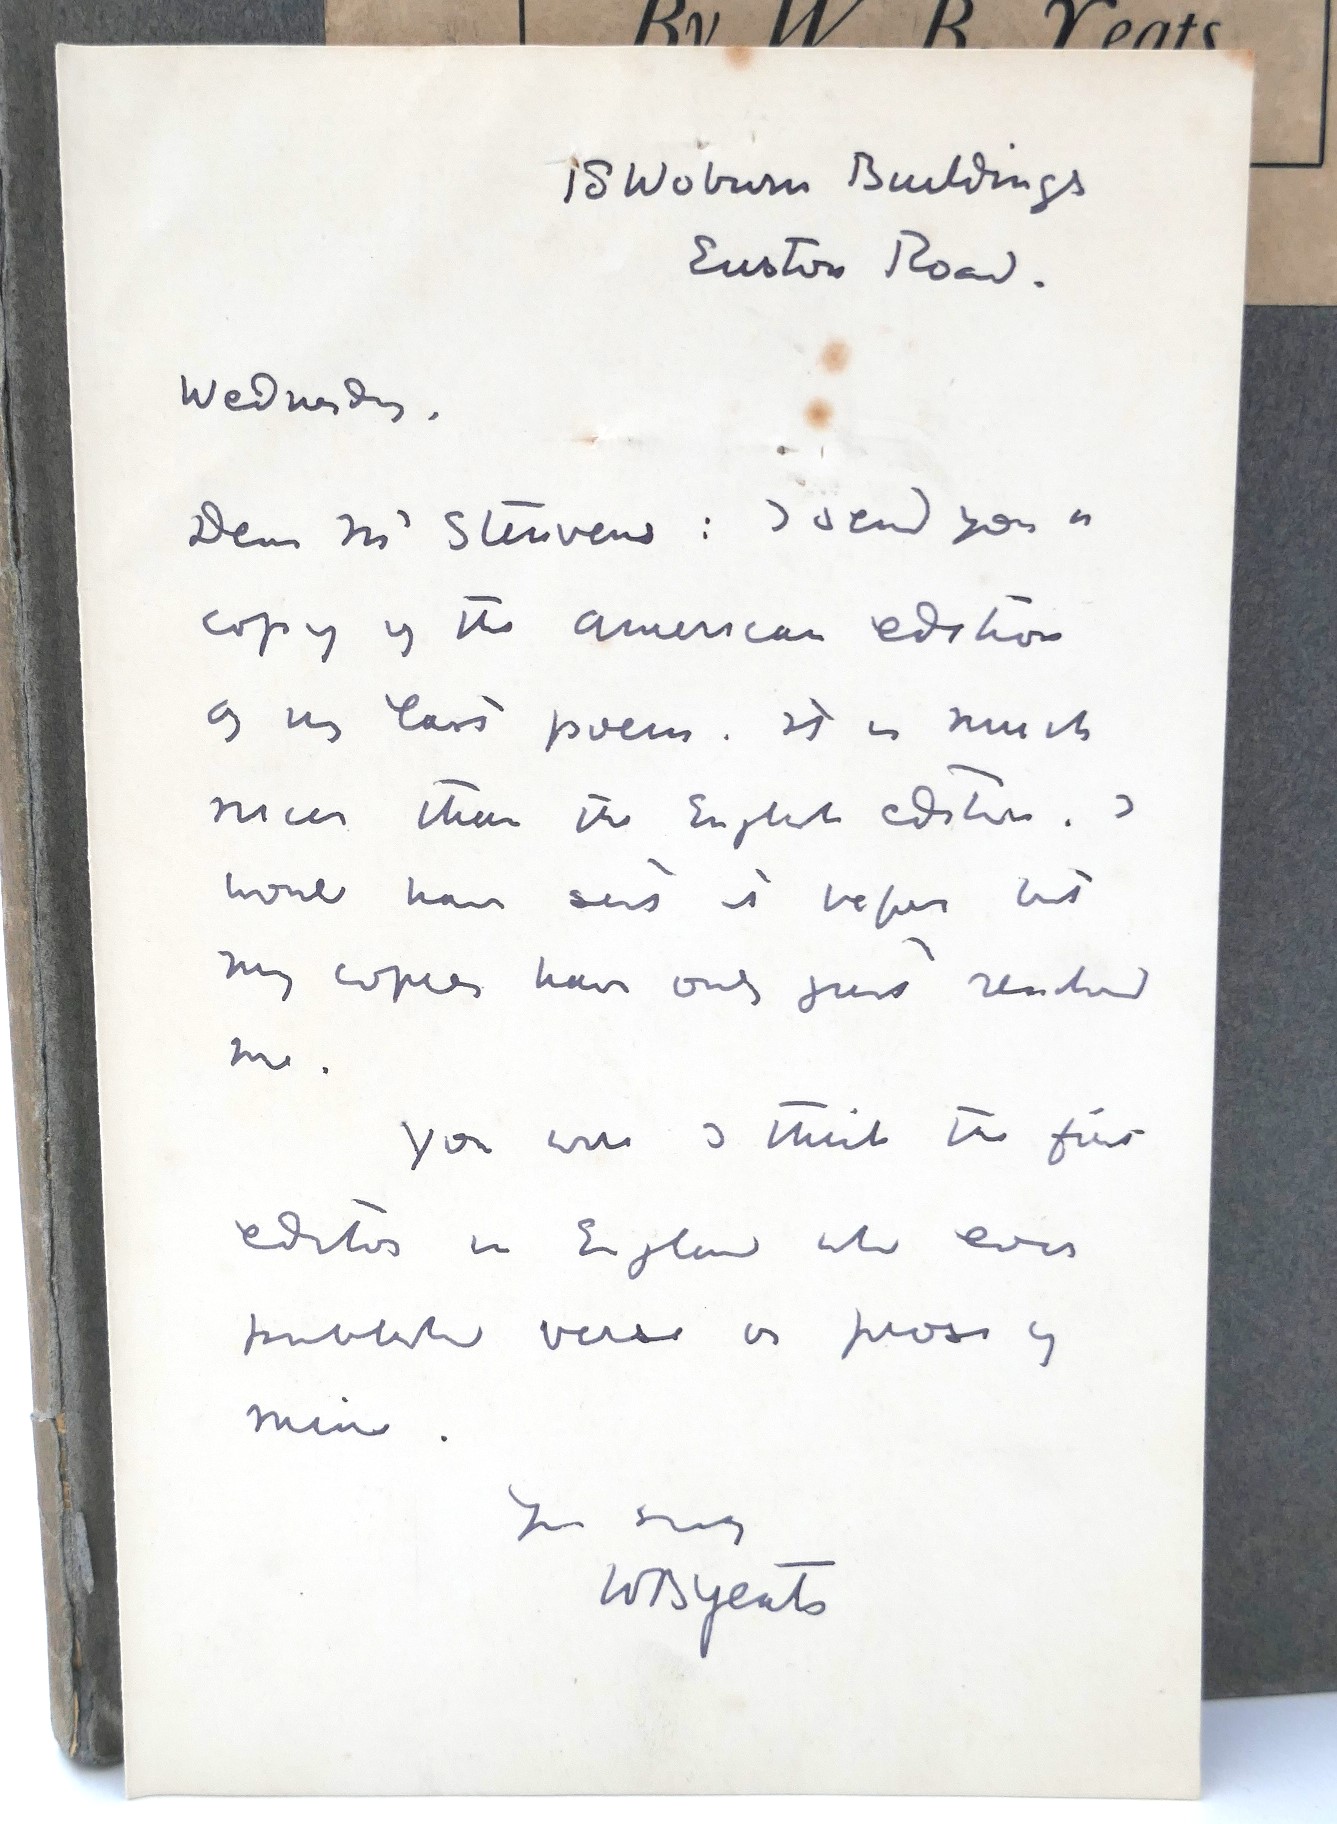 By W. B. Yeats
18 Woburn Buildings
Euston Road.
Wednesday.
Dear Mr Steuvens : I send you a
copy of the American edition
of my last poem. It is much
nicer than the English edition. I
would have sent it before but
my copies have only just reached
me.
You were I think the first
editor in England who ever
published verse or prose of
mine.
Yrs sincly
WBYeats